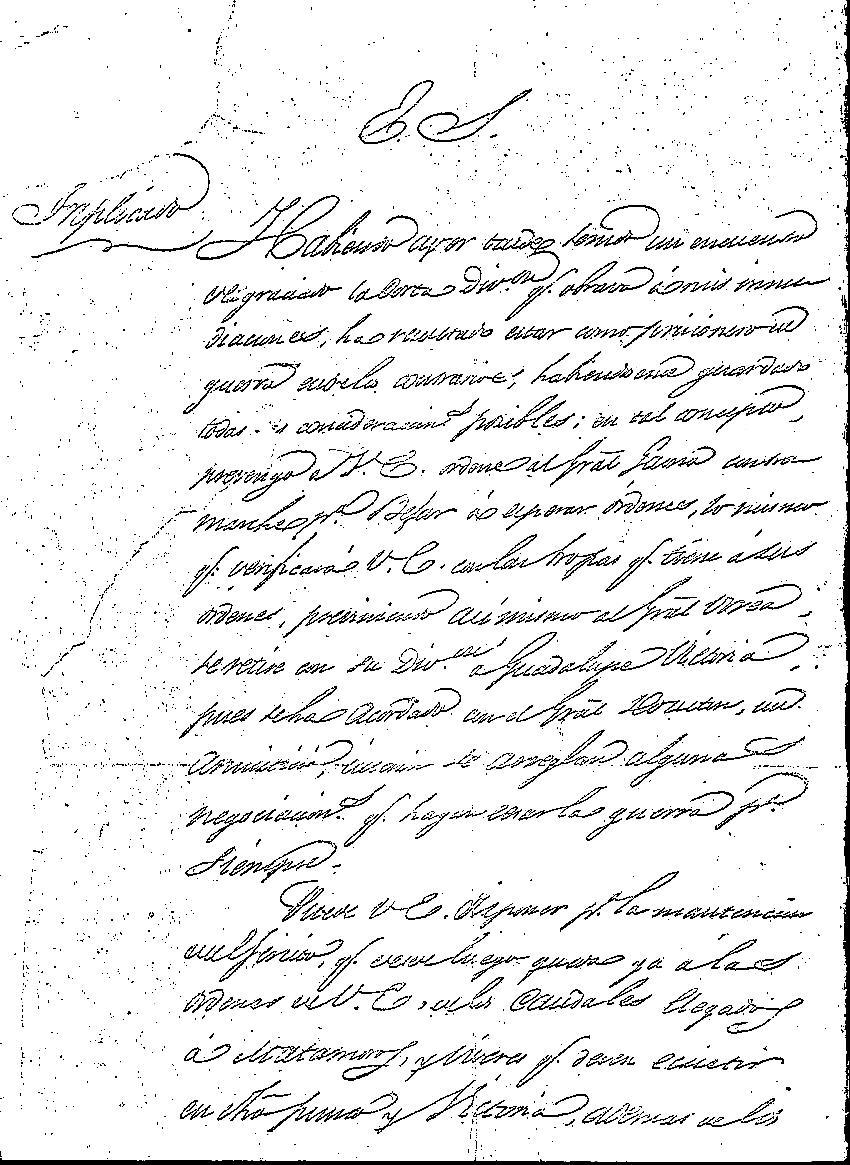 E. S.
Duplicado
Habiendo ayer tarde tenido un encuentro
desgraciado la corta Div.on q.e obrava á mis inme
diaciones, ha resultado estar como prisionero de
guerra entre los contrarios, habiendoseme guardado
todas las consideracion.s posibles; en tal concepto,
prevengo a V. E. ordene al Gral Gaona contra
marche p.a Bejar á esperar órdenes, lo mismo
q.e verificará V. E. con las tropas q.e tiene á sus
órdenes, previniendo asi mismo al Gral Urrea,
se retire con su Div.on á Guadalupe Victoria,
pues se ha acordado con el Gral Houston, un
Armisticio, interin se arreglan algunas
negociacion.s q.e hagan cesar la guerra p.a
siempre.
Puede V. E. disponer p.a la mantencion
del Ejercito, q.e desde luego queda ya á las
órdenes de V. E., de los caudales llegados
á Matamoros, y viveres q.e deben ecsistir
en dho punto y Victoria, ademas de los